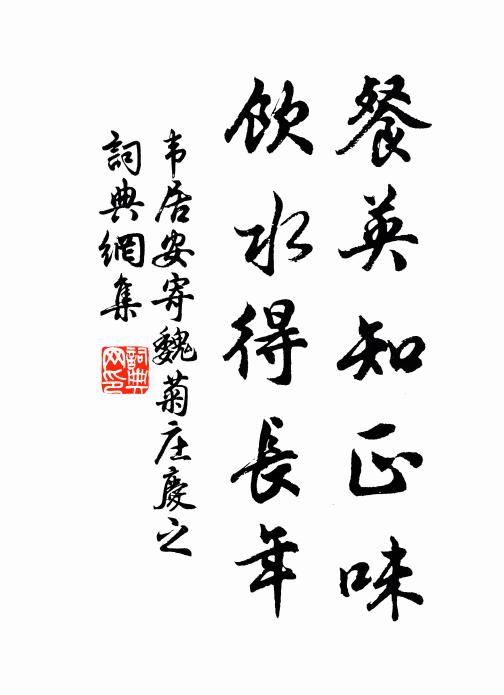 餐英知正味
飲水得長年
韦居安寄魏菊庄慶之
詞典網集
詞典网印